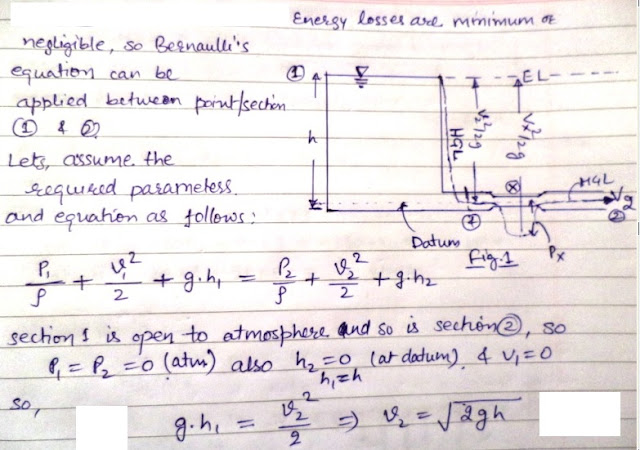 Energy losses are minimum or
negligible, so Bernaulli's
equation can be
applied between point/section
① & ②
Lets, assume the
required parameters.
and equation as follows:
① EL
h
V₂²/2g
Vx²/2g
HGL
ⓧ
HGL
V₂
②
Datum
Fig. 1
Px
P₁/ρ + v₁²/2 + g.h₁ = P₂/ρ + v₂²/2 + g.h₂
section 1 is open to atmosphere and so is section ②, so
P₁ = P₂ = 0 (atm) also h₂=0 (at datum), & v₁=0
h₁=h
so,
g.h₁ = v₂²/2 ⇒ v₂ = √2gh